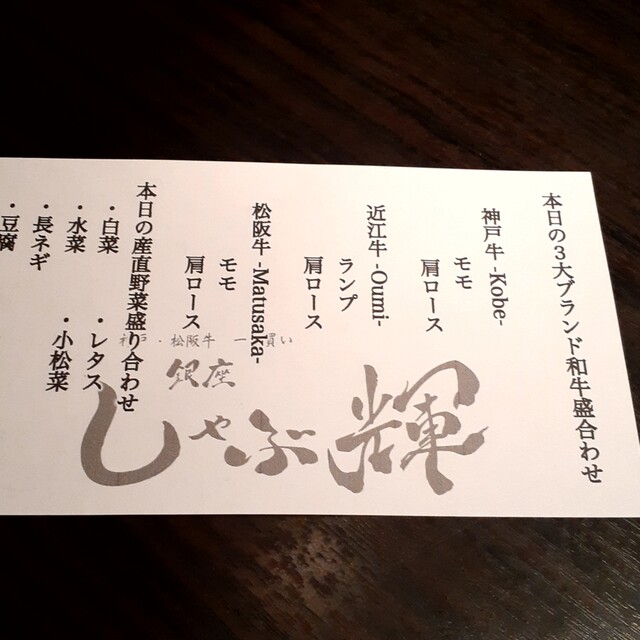 本日の3大ブランド和牛盛合わせ
神戸牛 -Kobe-
モモ
肩ロース
近江牛 -Oumi-
ランプ
肩ロース
松阪牛 -Matusaka-
モモ
肩ロース
本日の産直野菜盛り合わせ
・白菜
・レタス
・水菜
・小松菜
・長ネギ
・豆腐
神戸・松阪牛 一 買い
銀座
しゃぶ輝